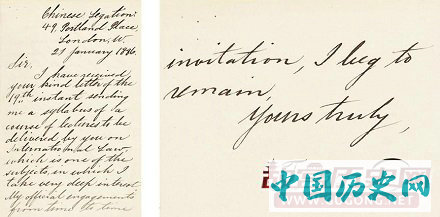 Chinese Legation
49, Portland Place,
London, W.
21 January 1886
Sir,
I have received
your kind letter of the
19th instant sending
me a syllabus of a
course of lectures to be
delivered by you on
International Law,
which is one of the
subjects in which I
take very deep interest.
My official engagements
from time to time
invitation, I beg to
remain,
Yours truly,
中国历史网